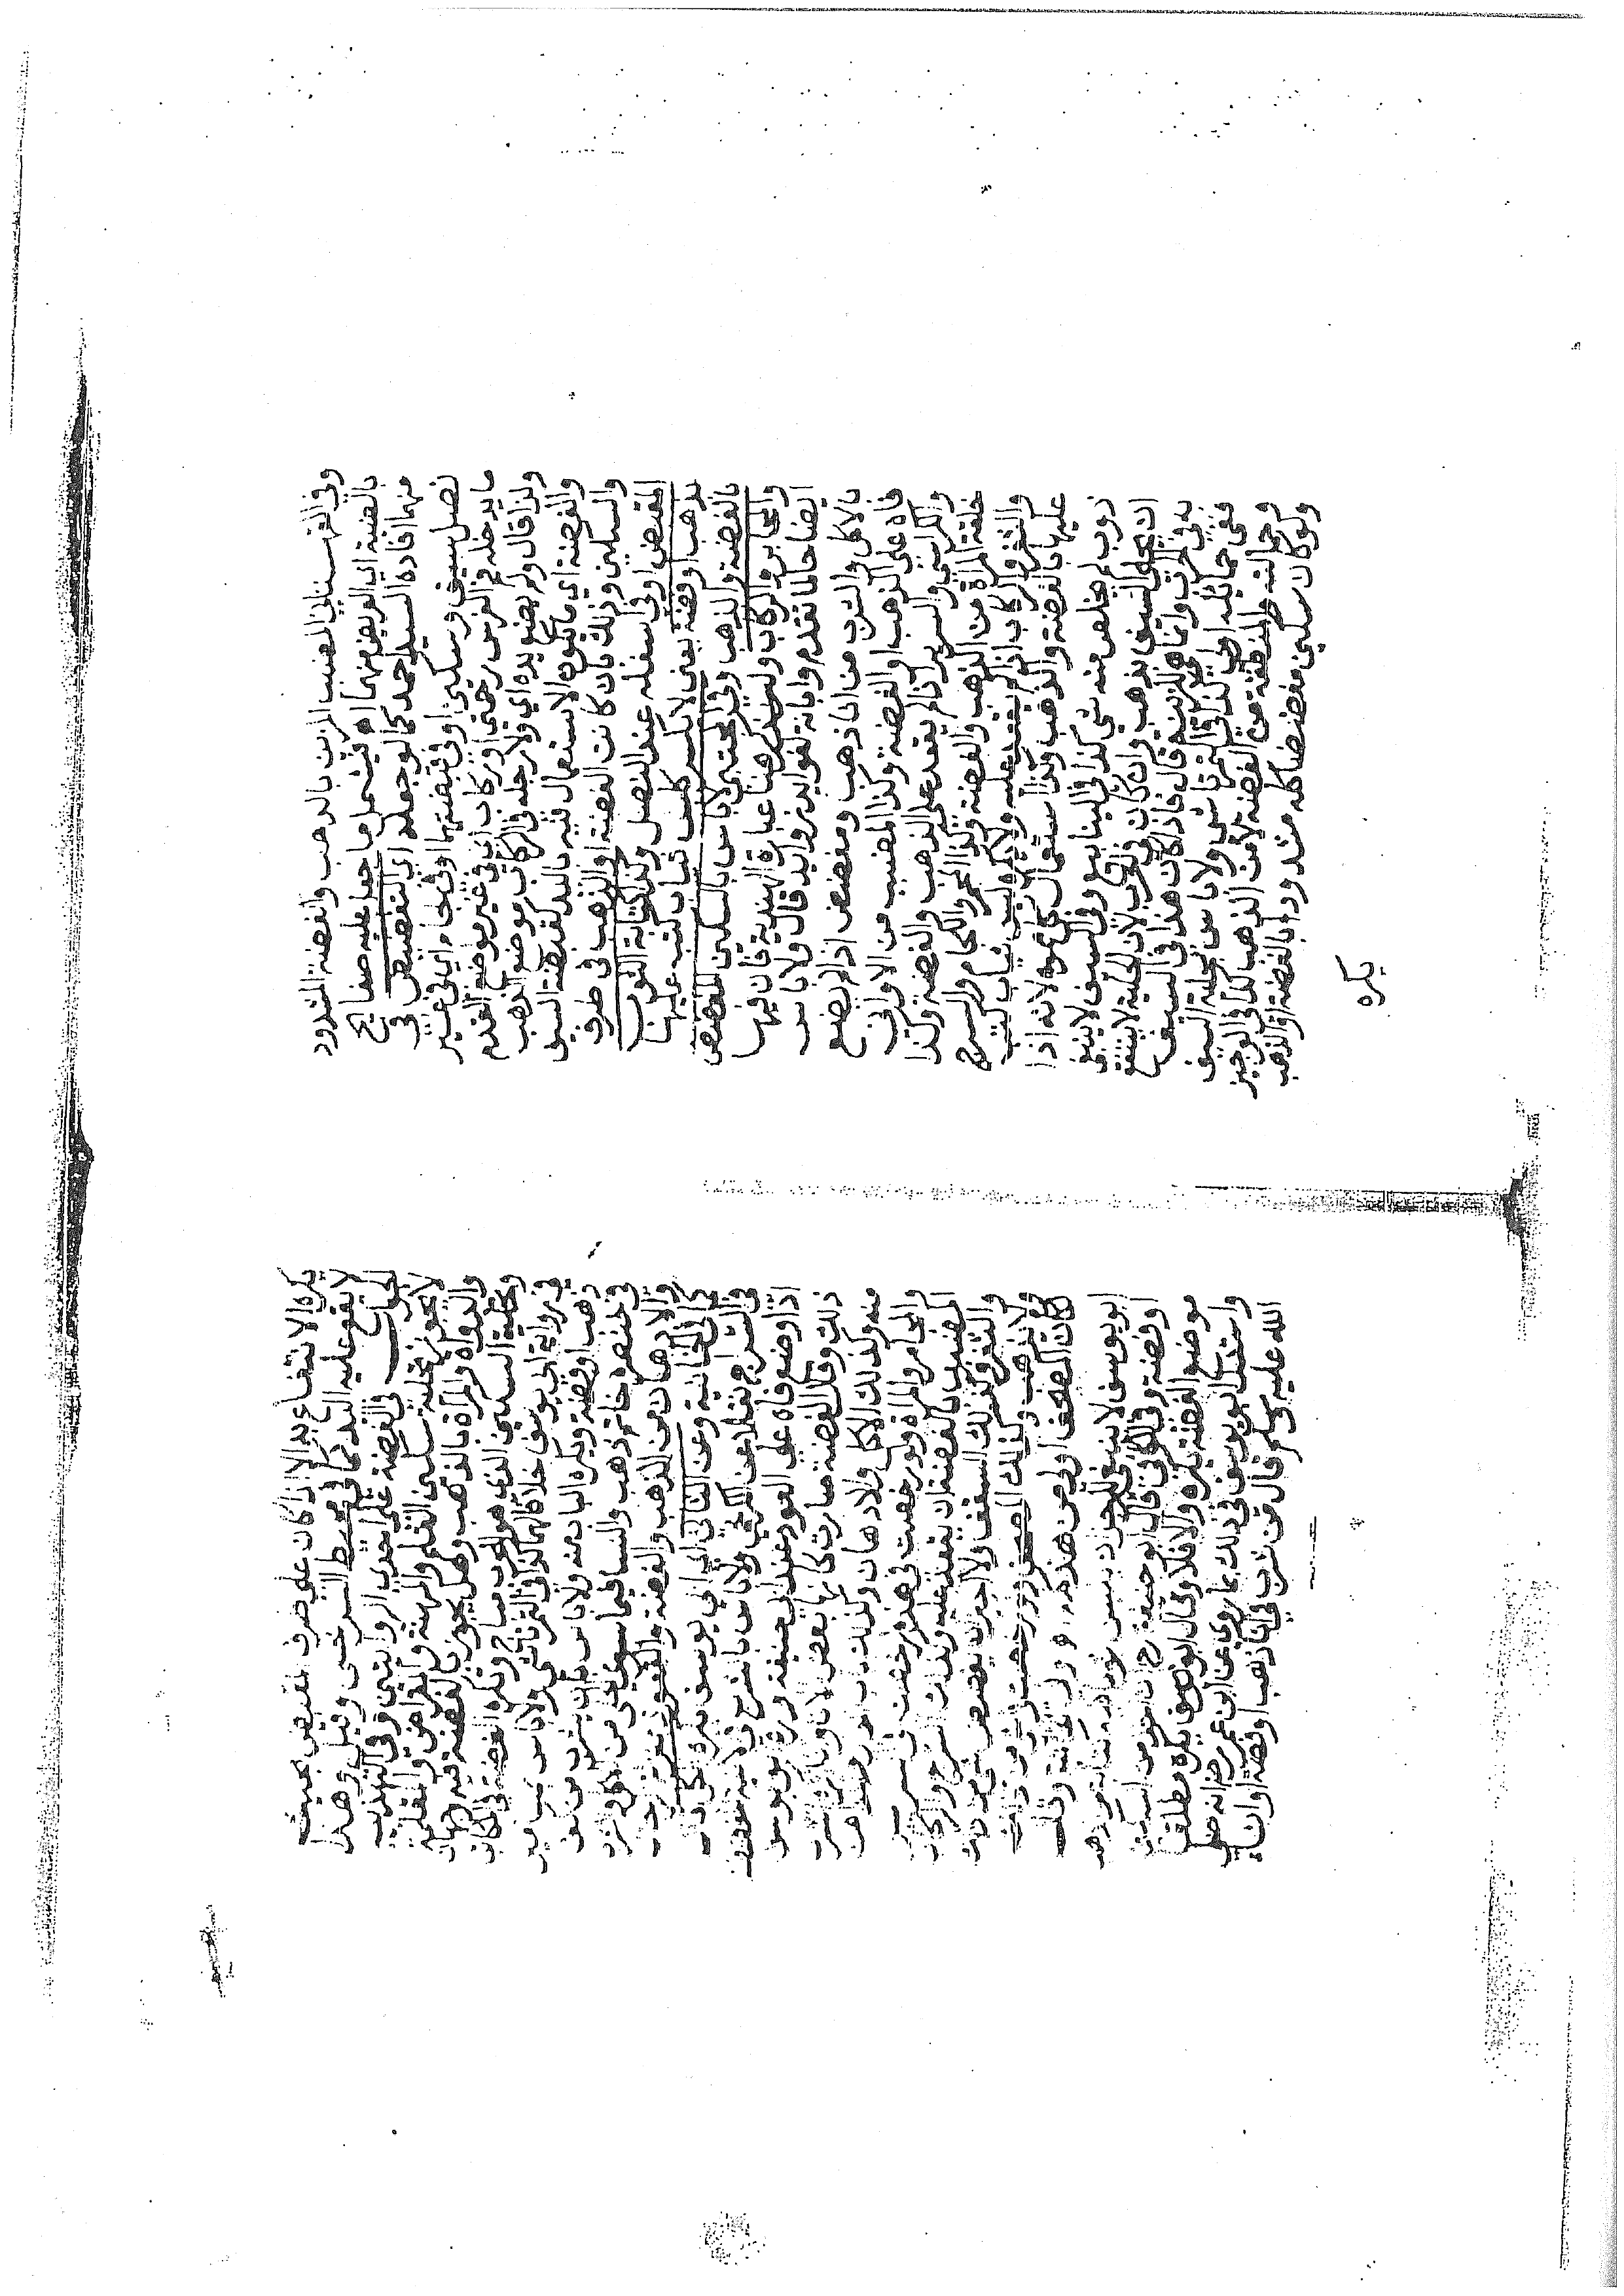 وفي القهستاني المضبب المزين بالذهب والفضة المشدود
بالضبة اي العريض منهما اه فيشمل ما جعل عليه صفايح
منهما افاده السيد احمد كما لو جعله اي التفضيض في
نصل سيف وسكين او في قبضتهما او في لجام اي في غير
ما يدخله فم الفرس حتي او ركاب اي في غير موضع القدم
ولذا قال ولم يضع يده اي ولا رجله في الركاب موضع الذهب
والفضة اي ما يكون الاستعمال فيه باليد كقبضة السيف
والسكين وذلك بان كانت الفضة او الذهب في طرف
المقبض او في اسفله عند النصل وكذا كتابة الثوب
بذهب او فضة يعني لا باس كلبس ثياب كتب عليها
بالفضة والذهب وفي المجتبي لا باس بالسكين المفضض
والمحابر والركاب وليذكر هنا عبارة الهندية فان فيها
ايضاحا لما تقدم وابانة لفوايد زوايد قال ولا باس
بالاكل والشرب من اناء مذهب ومفضض اذا لم يضع
فاه على الذهب او الفضة وكذا المضبب من الاواني
والكراسي والسرير اذا لم يقعد على الذهب والفضة وكذا
حلقة المراة من الذهب والفضة وكذا المجمر واللجام والسرج
والثفر والركاب اذا لم يقعد عليه ولا يكره لبس ثياب كتب
عليها بالفضة والذهب وكذا استعمال كل مموه لانه اذا
ذوب لم يخلص منه شي كذا في الينابيع وفي السيف لا ينبغي
ان يحلي السيف بذهب وان كان في الحرب لان الحلية لا ينتفع
به في الحرب وانما هي للزينة قال فاذا كان هذا في السيف
ففي حمائله اولى كذا في التمرتاشي ولا باس بحلية السيف
وحمائله والمنطقة من الفضة لا من الذهب كذا في الوجيز
ولو كان سكين مفضضا كله مشدودا بالفضة او الذهب
يكره
يكره الا انتفاع به الا اذا كان على طرف مقبض بحيث
لا يقع عليه اليد كما في محيط السرخسي وقيل وهذا
الجواب في الفضة على احدي الروايتين وفي التهذيب
لا يجوز تحلية سكين القلم والمهنة والمقراض والمقلمة
والدواة والمرآة بالذهب وهل يجوز بالفضة فيه وجهان
وتحلية السكين الذي هو للحرب مباح وتكره الفضة في المكاتب
في رواية ابي يوسف خلافا لهما كذا في التمرتاشي ولا باس بمسامير
ذهب او فضة ويكره الباب منه ولا باس بان يشرب من كف
في خنصره خاتم ذهب والنسا فيما سوي الحلي من الاكل والشرب
والادهان من الذهب والفضة والعقود بمنزلة الرجال
كما في الخانية وعن الثاني اي ابي يوسف يكره الكل
في السراج نقلا عن الكرخي ولا باس بالشرب في الانية المفضضة
اذا وضع فاه على العود عند ابي حنيفة وكره ابو يوسف
ذلك وقال الفضة صارت كانها بعض الانا وبالشرب
منه وكذلك الاكل والادهان وكذلك باب
والمجامر والمراة ورخصت في هذا
المضبب بالفضة ان يقعد عليه وكذلك السرج والركاب
والثفر وكذلك السقف ولا
ولا بذهب وكذلك المصحف
ككان المصحف اولى من هذه
ابو يوسف لا ينبغي للرجل ان يلبس ثوبا فيه كتابة من ذهب
او فضة وفي الكافي قال ابو حنيفة رح
موضع الفضة يكره والا فلا وقال ابو يوسف يكره مطلقا
واستدل ابو يوسف في ذلك بما روي عن ابن عمر رض انه صلى
الله عليه وسلم قال من شرب في انا ذهب او فضة او انا